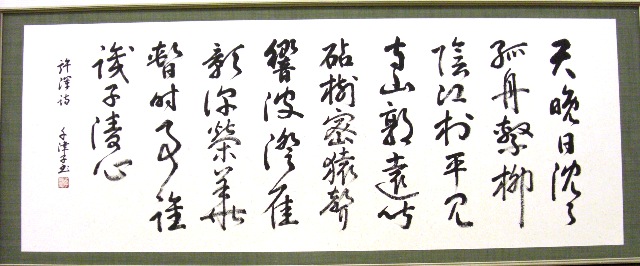 天晩日沈々
孤舟繫柳
陰江村平見
寺山郭遠聞
砧樹密猿聲
響波澄雁
影深榮華
暫時事誰
識子陵心
許渾詩